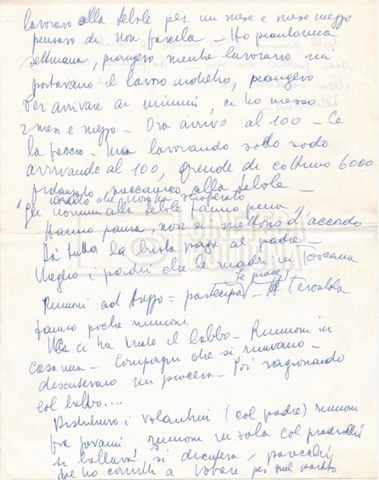 lavoravo alla Lebole per un mese e mese mezzo
pensavo di non farcela - Ho pianto una
settimana, piangevo mentre lavoravo mi
portavano il lavoro indietro, piangevo
Per arrivare ai minimi, ci ho messo
2 mesi e mezzo - Ora arrivo al 100 - Ce
la faccio - Ma lavorando sodo sodo
arrivando al 100, prende di cottimo 6000
alla Lebole -
credo che non
"Gli uomini alla Lebole fanno pena"
Hanno paura, non si mettono d'accordo
Dà tutta la busta paga al padre -
Meglio i padri che le madri in Toscana
le piace
Riunioni ad Arezzo = partecipa - A Terontola
fanno poche riunioni
Ma ci ha il babbo - Riunioni in
casa mia - Compagni che si riunivano -
discutevano mi piaceva - Poi ragionando
col babbo....
Distribuivo i volantini (col padre) riunioni
fra giovani riunioni in sala col
si ballava si discuteva, parecchi
che ho convinti a votare pel mio partito